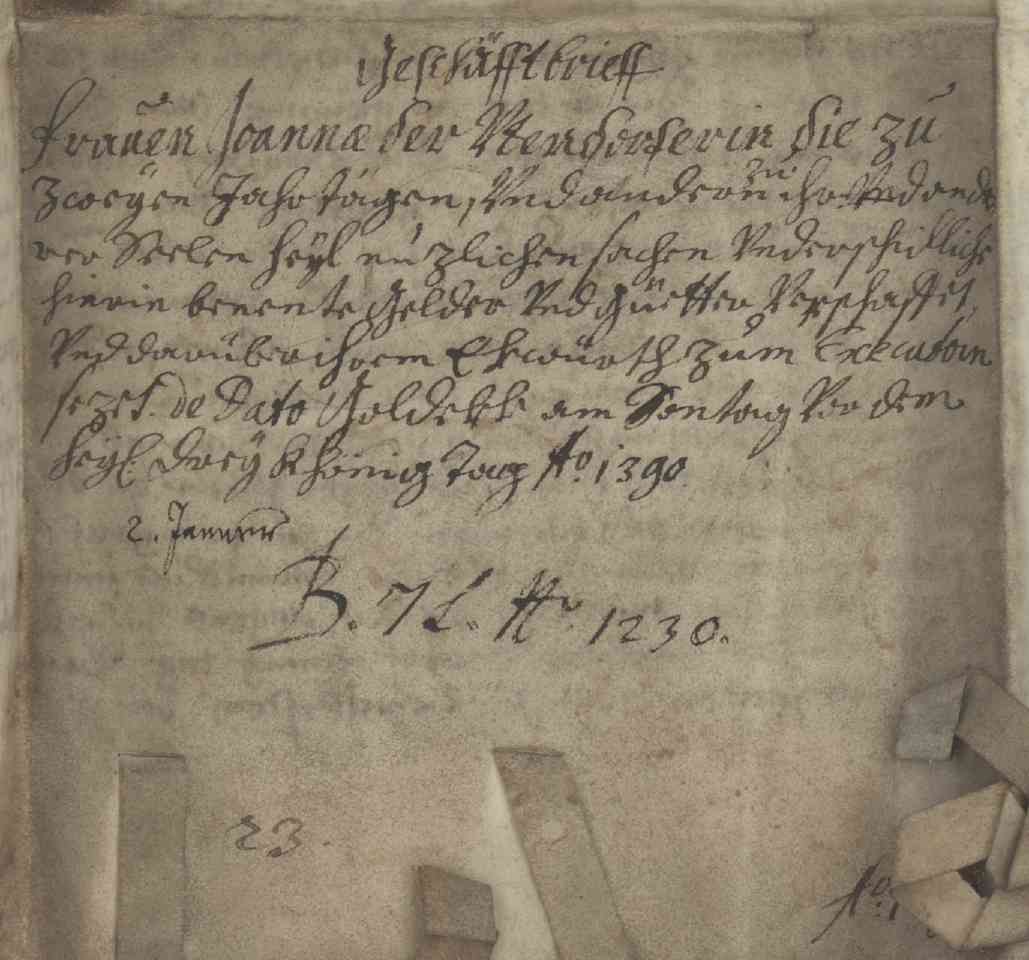 Geschäfftbrieff
Frauen Joannæ der Wendorferin die zu
zweyen Jahrtägen, Und andern zu ihr Und ande
rer Seelen heyl nuzlichen sachen Underschidliche
hierin benente Gelder Und güetter Verschaffet,
Und darüber ihrem Ehewürth zum Executorn
sezet. de Dato Goldekk am Sontag Vor dem
heyl. drey Khönig Tag Ao. 1390
2. Jenner
B. 7 L. No. 1230.
23.
Ao. 1